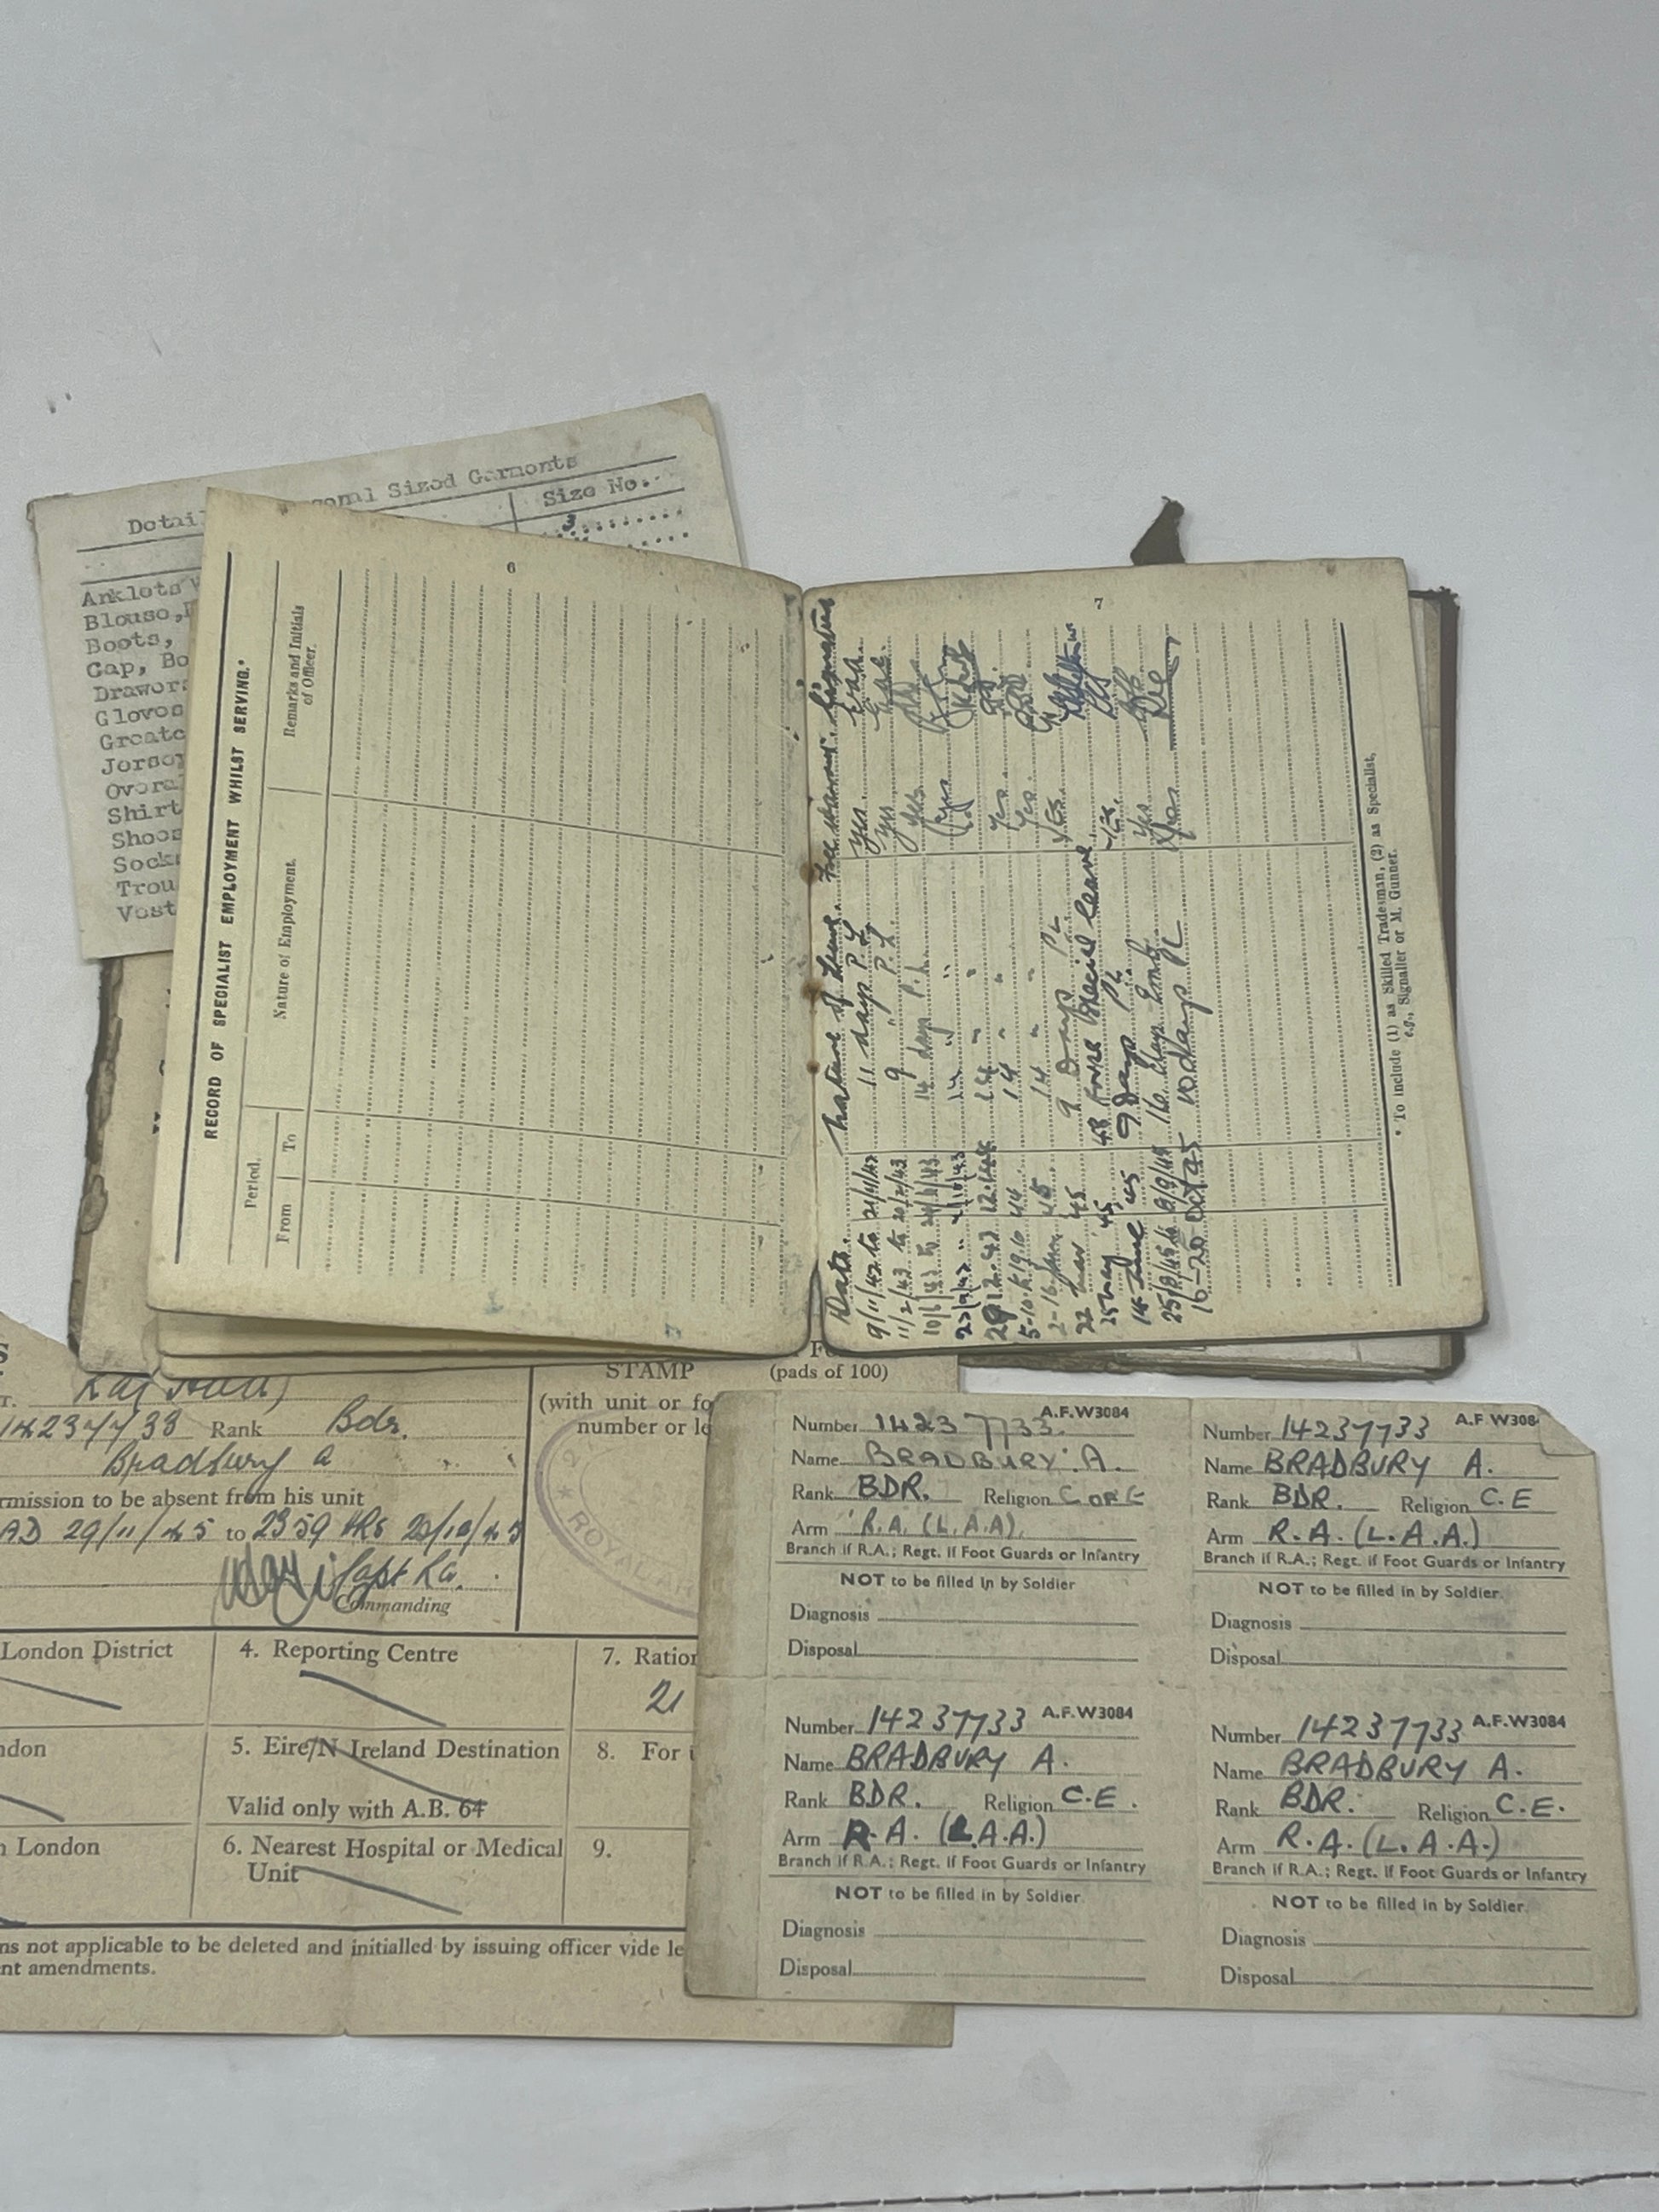 Detai
sonal Sized Garments
Size No.
3
Anklets W
Blouse,
Boots,
Cap, Bo
Drawers
Gloves
Greatc
Jersey
Overal
Shirt
Shoes
Socks
Trou
Vest
6
RECORD OF SPECIALIST EMPLOYMENT WHILST SERVING.*
Period.
From
To
Nature of Employment.
Remarks and Initials
of Officer.
7
Date. Nature of Leave. Free Warrant. Signature
9/11/42 to 21/11/42 11 days P.L. yes
11/2/43 to 20/2/43 9 " P.L. yes
10/6/43 to 14 days P.L. yes
14 " " yes
29.12.43 12.1.44 14 " " Yes
5-10 to 19.10 44 14 " " Yes
2-16 Jan 45 14 " " YES
22 Mar 45 9 Days PL
25 May 45 48 Hours Special Leave YES
14 June 45 9 Days PL Yes
25/8/45 to 9/9/45 16 days Yes
16-20 Oct 45 10 days PL Yes
* To include (1) as Skilled Tradesman, (2) as Specialist,
e.g., Signaller or M. Gunner.
14237733 Rank Bdr.
Bradbury A
rmission to be absent from his unit
AD 29/11/45 to 2359 HRS
Capt RA.
Commanding
STAMP
(pads of 100)
(with unit or fo
number or le
ROYAL AR
London District
4. Reporting Centre
7. Ration
21
ndon
5. Eire/N Ireland Destination
8. For
Valid only with A.B. 64
n London
6. Nearest Hospital or Medical
Unit
9.
ns not applicable to be deleted and initialled by issuing officer vide le
nt amendments.
A.F.W3084
Number 14237733
Name BRADBURY A.
Rank BDR. Religion C OF E
Arm R.A. (L.A.A).
Branch if R.A.; Regt. if Foot Guards or Infantry
NOT to be filled in by Soldier
Diagnosis
Disposal
A.F.W308
Number 14237733
Name BRADBURY A.
Rank BDR. Religion C.E
Arm R.A. (L.A.A.)
Branch if R.A.; Regt. if Foot Guards or Infantry
NOT to be filled in by Soldier.
Diagnosis
Disposal
Number 14237733 A.F.W3084
Name BRADBURY A.
Rank BDR. Religion C.E.
Arm R.A. (L.A.A.)
Branch if R.A.; Regt. if Foot Guards or Infantry
NOT to be filled in by Soldier.
Diagnosis
Disposal
Number 14237733 A.F.W3084
Name BRADBURY A.
Rank BDR. Religion C.E.
Arm R.A. (L.A.A.)
Branch if R.A.; Regt. if Foot Guards or Infantry
NOT to be filled in by Soldier.
Diagnosis
Disposal